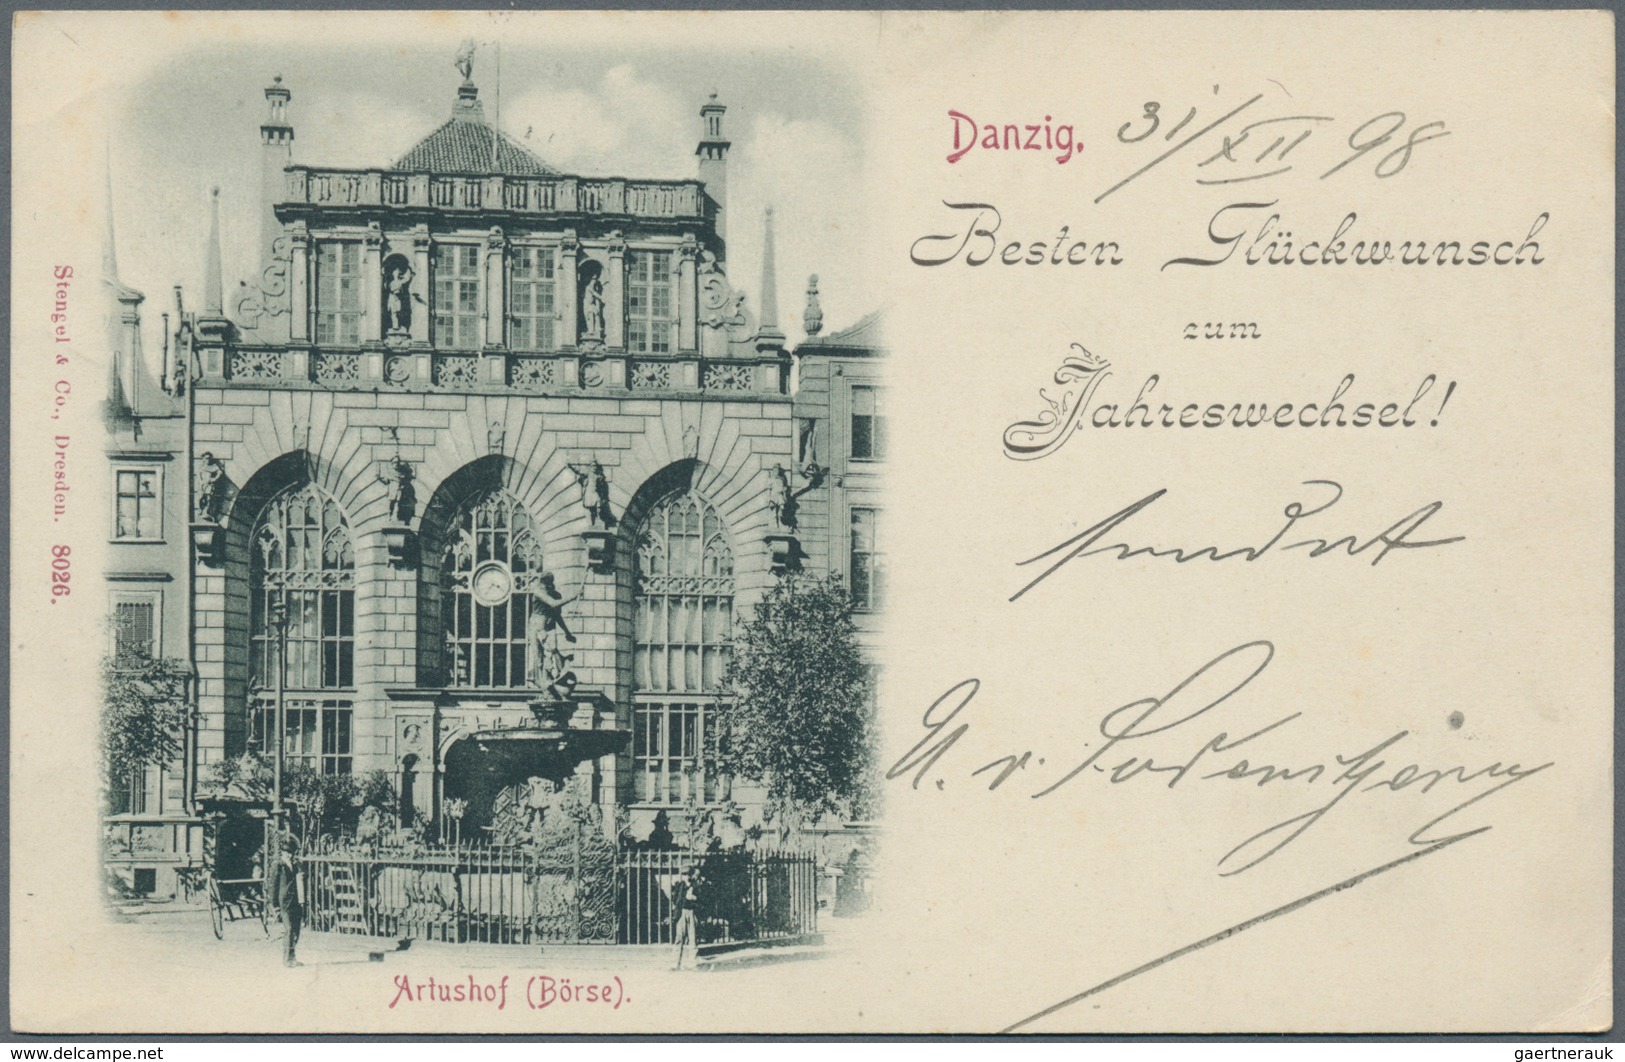 Danzig. 31/XII 98
Besten Glückwunsch
zum
Jahreswechsel!
sendet
Stengel & Co., Dresden. 8026.
Artushof (Börse).
delcampe.net
gaertnerauk